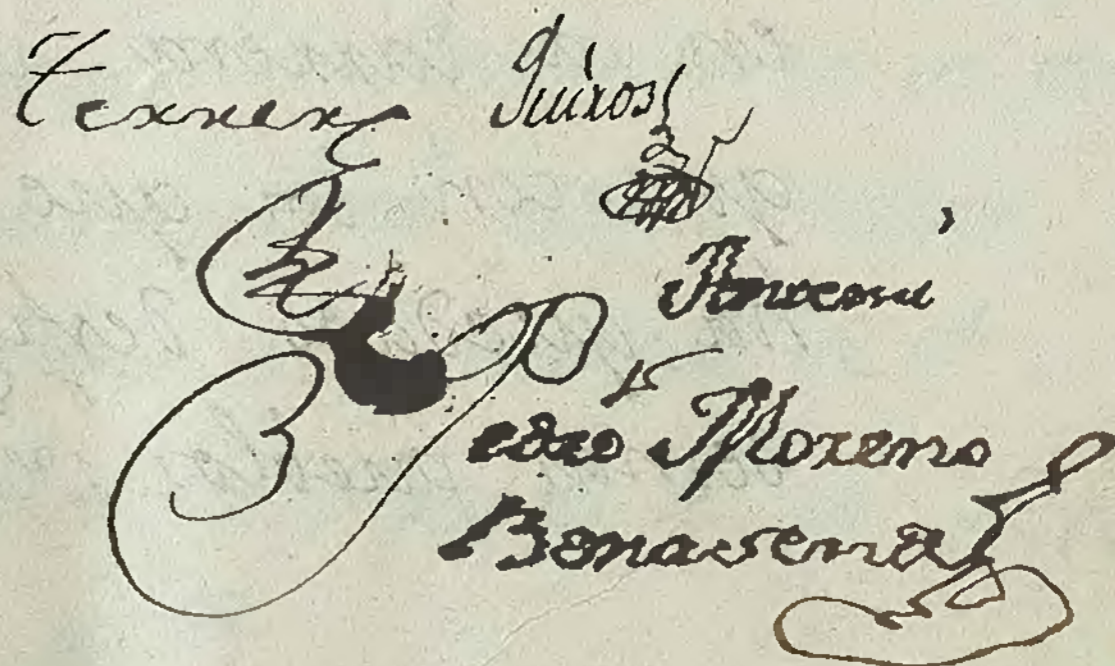 Ferrer Quiros
Antemi
Pedro Moreno
Bonavena